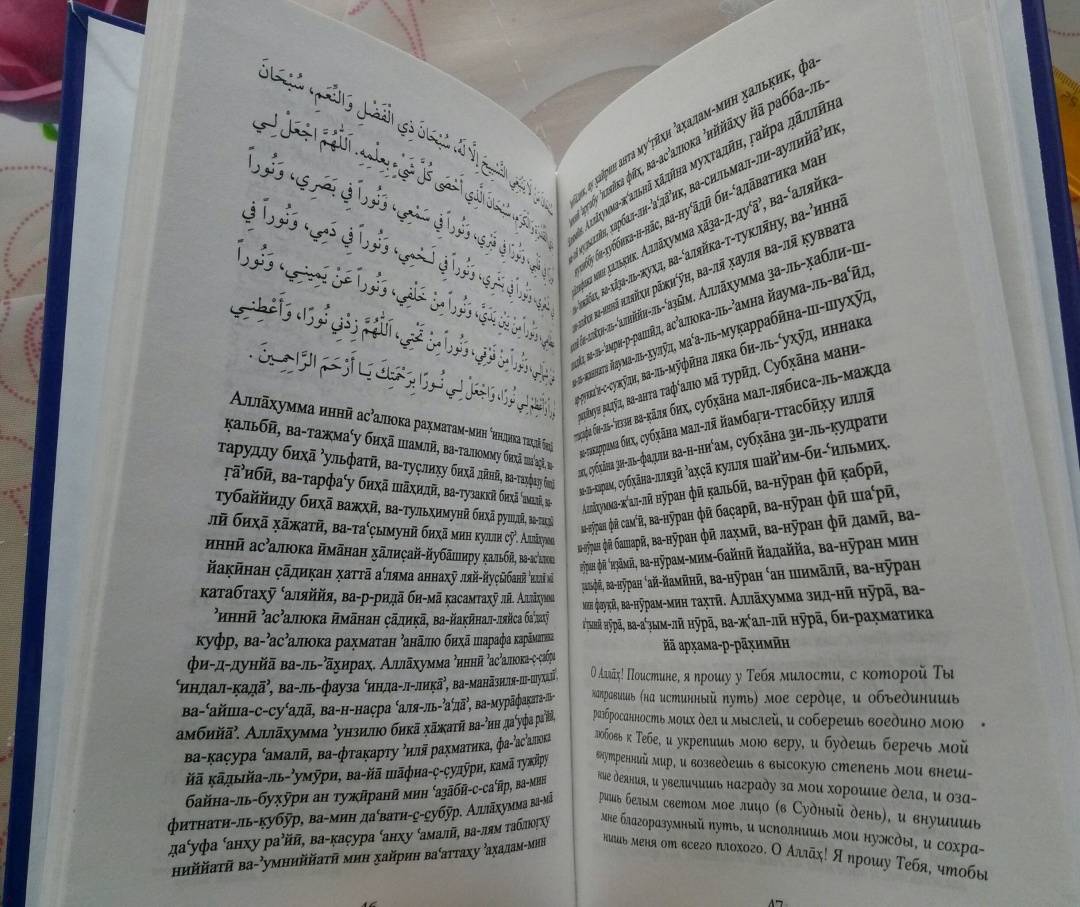 سُبْحَانَ مَنْ لَا يَنْبَغِي التَّسْبِيحُ إِلَّا لَهُ، سُبْحَانَ ذِي الْفَضْلِ وَالنِّعَمِ، سُبْحَانَ
وَالْكَرَمِ، سُبْحَانَ الَّذِي أَحْصَى كُلَّ شَيْءٍ بِعِلْمِهِ. اَللّٰهُمَّ اجْعَلْ لِي
نُوراً فِي قَلْبِي، وَنُوراً فِي قَبْرِي، وَنُوراً فِي سَمْعِي، وَنُوراً فِي بَصَرِي، وَنُوراً
فِي شَعْرِي، وَنُوراً فِي بَشَرِي، وَنُوراً فِي لَحْمِي، وَنُوراً فِي دَمِي، وَنُوراً فِي
عِظَامِي، وَنُوراً مِنْ بَيْنِ يَدَيَّ، وَنُوراً مِنْ خَلْفِي، وَنُوراً عَنْ يَمِينِي، وَنُوراً
عَنْ شِمَالِي، وَنُوراً مِنْ فَوْقِي، وَنُوراً مِنْ تَحْتِي، اَللّٰهُمَّ زِدْنِي نُورًا، وَأَعْطِنِي
نُوراً وَأَعْظِمْ لِي نُورًا، وَاجْعَلْ لِي نُورًا بِرَحْمَتِكَ يَا أَرْحَمَ الرَّاحِمِينَ .
Аллāҳумма иннӣ асʼалюка раҳматам-мин ʻиндика таҳдӣ биҳā
қальбӣ, ва-таҗмаʻу биҳā шамлӣ, ва-талюмму биҳā шаʻас̱ӣ, ва-
тарудду биҳā ʼульфатӣ, ва-туслиҳу биҳā дӣнӣ, ва-таҳфаз̣у биҳā
ғāʼибӣ, ва-тарфаʻу биҳā шāҳидӣ, ва-тузаккӣ биҳā ʻамалӣ, ва-
тубаййиду биҳā ваҗҳӣ, ва-тульҳимунӣ биҳā рушдӣ, ва-тақдӣ
лӣ биҳā ҳāҗатӣ, ва-таʻс̣ымунӣ биҳā мин кулли сӯʼ. Аллāҳумма
иннӣ асʼалюка ӣмāнан ҳāлис̣ай-йубāширу қальбӣ, ва-асʼалюка
йақӣнан с̣āдиқан ҳаттā аʻляма аннаҳӯ ляй-йус̣ӣбанӣ ʼиллā мā
катабтаҳӯ ʻаляййя, ва-р-ридā би-мā қасамтаҳӯ лӣ. Аллāҳумма
ʼиннӣ ʼасʼалюка ӣмāнан с̣āдиқā, ва-йақӣнал-ляйса баʻдаҳӯ
куфр, ва-ʼасʼалюка раҳматан ʼанāлю биҳā шарафа карāматика
фи-д-дунйā ва-ль-ʼāҳираҳ. Аллāҳумма ʼиннӣ ʼасʼалюка-с̣-с̣абра
ʻиндал-қад̣āʼ, ва-ль-фауза ʻинда-л-лиқāʼ, ва-манāзиля-ш-шуҳадāʼ,
ва-ʻайша-с-суʻадā, ва-н-нас̣ра ʻаля-ль-ʼаʻдāʼ, ва-мурāфақата-ль-
амбийāʼ. Аллāҳумма ʼунзилю бикā ҳāҗатӣ ва-ʼин даʻуфа раʼйӣ,
ва-қас̣ура ʻамалӣ, ва-фтақарту ʼиля̄ раҳматика, фа-ʼасʼалюка
йā қāдыйа-ль-ʼумӯри, ва-йā шāфиа-с̣-с̣удӯри, камā туҗӣру
байна-ль-буҳӯри ан туҗӣранӣ мин ʻаз̱āбӣ-с-саʻӣр, ва-мин
фитнати-ль-қубӯр, ва-мин даʻвати-с̱-с̱убӯр. Аллāҳумма ва-мā
даʻуфа ʻанҳу раʼйӣ, ва-қас̣ура ʻанҳу ʻамалӣ, ва-лям таблюғҳу
ниййатӣ ва-ʼумниййатӣ мин ҳайрин ваʻаттаҳу ʼаҳадам-мин
46
ау ҳайрин анта муʻт̣ӣҳи ʼаҳадам-мин ҳалькик, фа-
ʼарғабу ʼиляйка фӣҳ, ва-асʼалюка ʼиййāҳу йā рабба-ль-
Аллāҳумма-җʻальнā ҳāдӣна муҳтадӣн, ғайра д̣āллӣна
мудыллӣн, ҳарбал-ли-ʼаʻдāʼик, ва-сильмал-ли-аулийāʼик,
нуҳиббу би-ҳуббика-н-нāс, ва-нуʻāдӣ би-ʻадāватика ман
ҳāлафака мин ҳалькик. Аллāҳумма ҳāза-д-дуʻāʼ, ва-ʻаляйка-
ль-ʼиҗāбаҳ, ва-ҳāза-ль-җуҳд, ва-ʻаляйка-т-тукляну, ва-ʼиннā
ли-ллāҳи ва-иннā иляйҳи рāҗиʻӯн, ва-ля̄ ҳауля ва-ля̄ қуввата
би-ллāҳи-ль-ʻалиййи-ль-ʻаз̣ӣм. Аллāҳумма за-ль-ҳабли-ш-
шадӣд, ва-ль-ʼамри-р-рашӣд, асʼалюка-ль-ʼамна йаума-ль-ваʻӣд,
ва-ль-җанната йаума-ль-ҳулӯд, маʻа-ль-муқаррабӣна-ш-шуҳӯд,
ар-руккаʻи-с-суҗӯди, ва-ль-мӯфӣна ляка би-ль-ʻуҳӯд, иннака
раҳӣмун вадӯд, ва-анта тафʻалю мā турӣд. Субҳāна мани-
ттас̣афа би-ль-ʻиззи ва-қāля биҳ, субҳāна мал-лябиса-ль-мажда
ва-такаррама биҳ, субҳāна мал-ля̄ йамбаги-ттасбӣҳу илля̄
ляҳ, субҳāна з̱и-ль-фад̣ли ва-н-ниʻам, субҳāна з̱и-ль-қудрати
ва-ль-карам, субҳāна-ллязӣ ʼаҳс̣ā кулля шайʼим-би-ʻильмиҳ.
Аллāҳумма-җʻал-лӣ нӯран фӣ қальбӣ, ва-нӯран фӣ қабрӣ,
ва-нӯран фӣ самʻӣ, ва-нӯран фӣ бас̣арӣ, ва-нӯран фӣ шаʻрӣ,
ва-нӯран фӣ башарӣ, ва-нӯран фӣ лаҳмӣ, ва-нӯран фӣ дамӣ, ва-
нӯран фӣ ʻиз̣āмӣ, ва-нӯрам-мим-байнӣ йадаййа, ва-нӯран мин
ҳальфӣ, ва-нӯран ʻай-йамӣнӣ, ва-нӯран ʻан шимāлӣ, ва-нӯран
мин фауқӣ, ва-нӯрам-мин таҳтӣ. Аллāҳумма зид-нӣ нӯрā, ва-
аʻт̣ынӣ нӯрā, ва-аʻз̣ым-лӣ нӯрā, ва-җʻал-лӣ нӯрā, би-раҳматика
йā арҳама-р-рāҳимӣн
О Аллāҳ! Поистине, я прошу у Тебя милости, с которой Ты
направишь (на истинный путь) мое сердце, и объединишь
разбросанность моих дел и мыслей, и соберешь воедино мою
любовь к Тебе, и укрепишь мою веру, и будешь беречь мой
внутренний мир, и возведешь в высокую степень мои внеш-
ние деяния, и увеличишь награду за мои хорошие дела, и оза-
ришь белым светом мое лицо (в Судный день), и внушишь
мне благоразумный путь, и исполнишь мои нужды, и сохра-
нишь меня от всего плохого. О Аллāҳ! Я прошу Тебя, чтобы
47